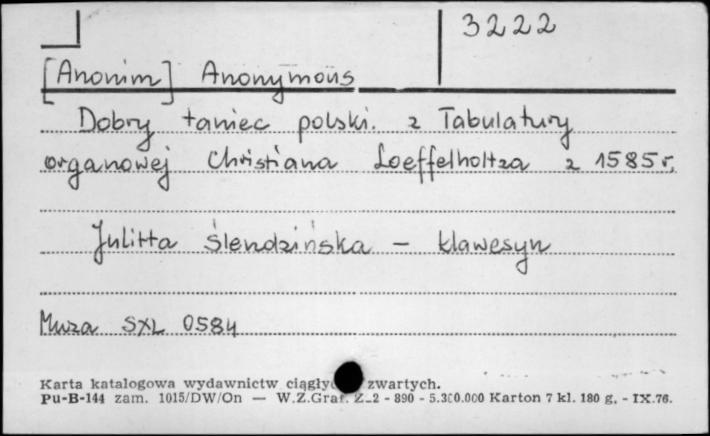 3222
[Anonim] Anonymous
Dobry taniec polski. z Tabulatury
organowej Christiana Loeffelholtza z 1585 r.
Julitta Ślendzińska – klawesyn
Muza SXL 0584
Karta katalogowa wydawnictw zwartych.
Pu-B-144 zam. 1015/DW/On — W.Z.Graf. Z-2 - 890 - 5.300.000 Karton 7 kl. 180 g. - IX.76.